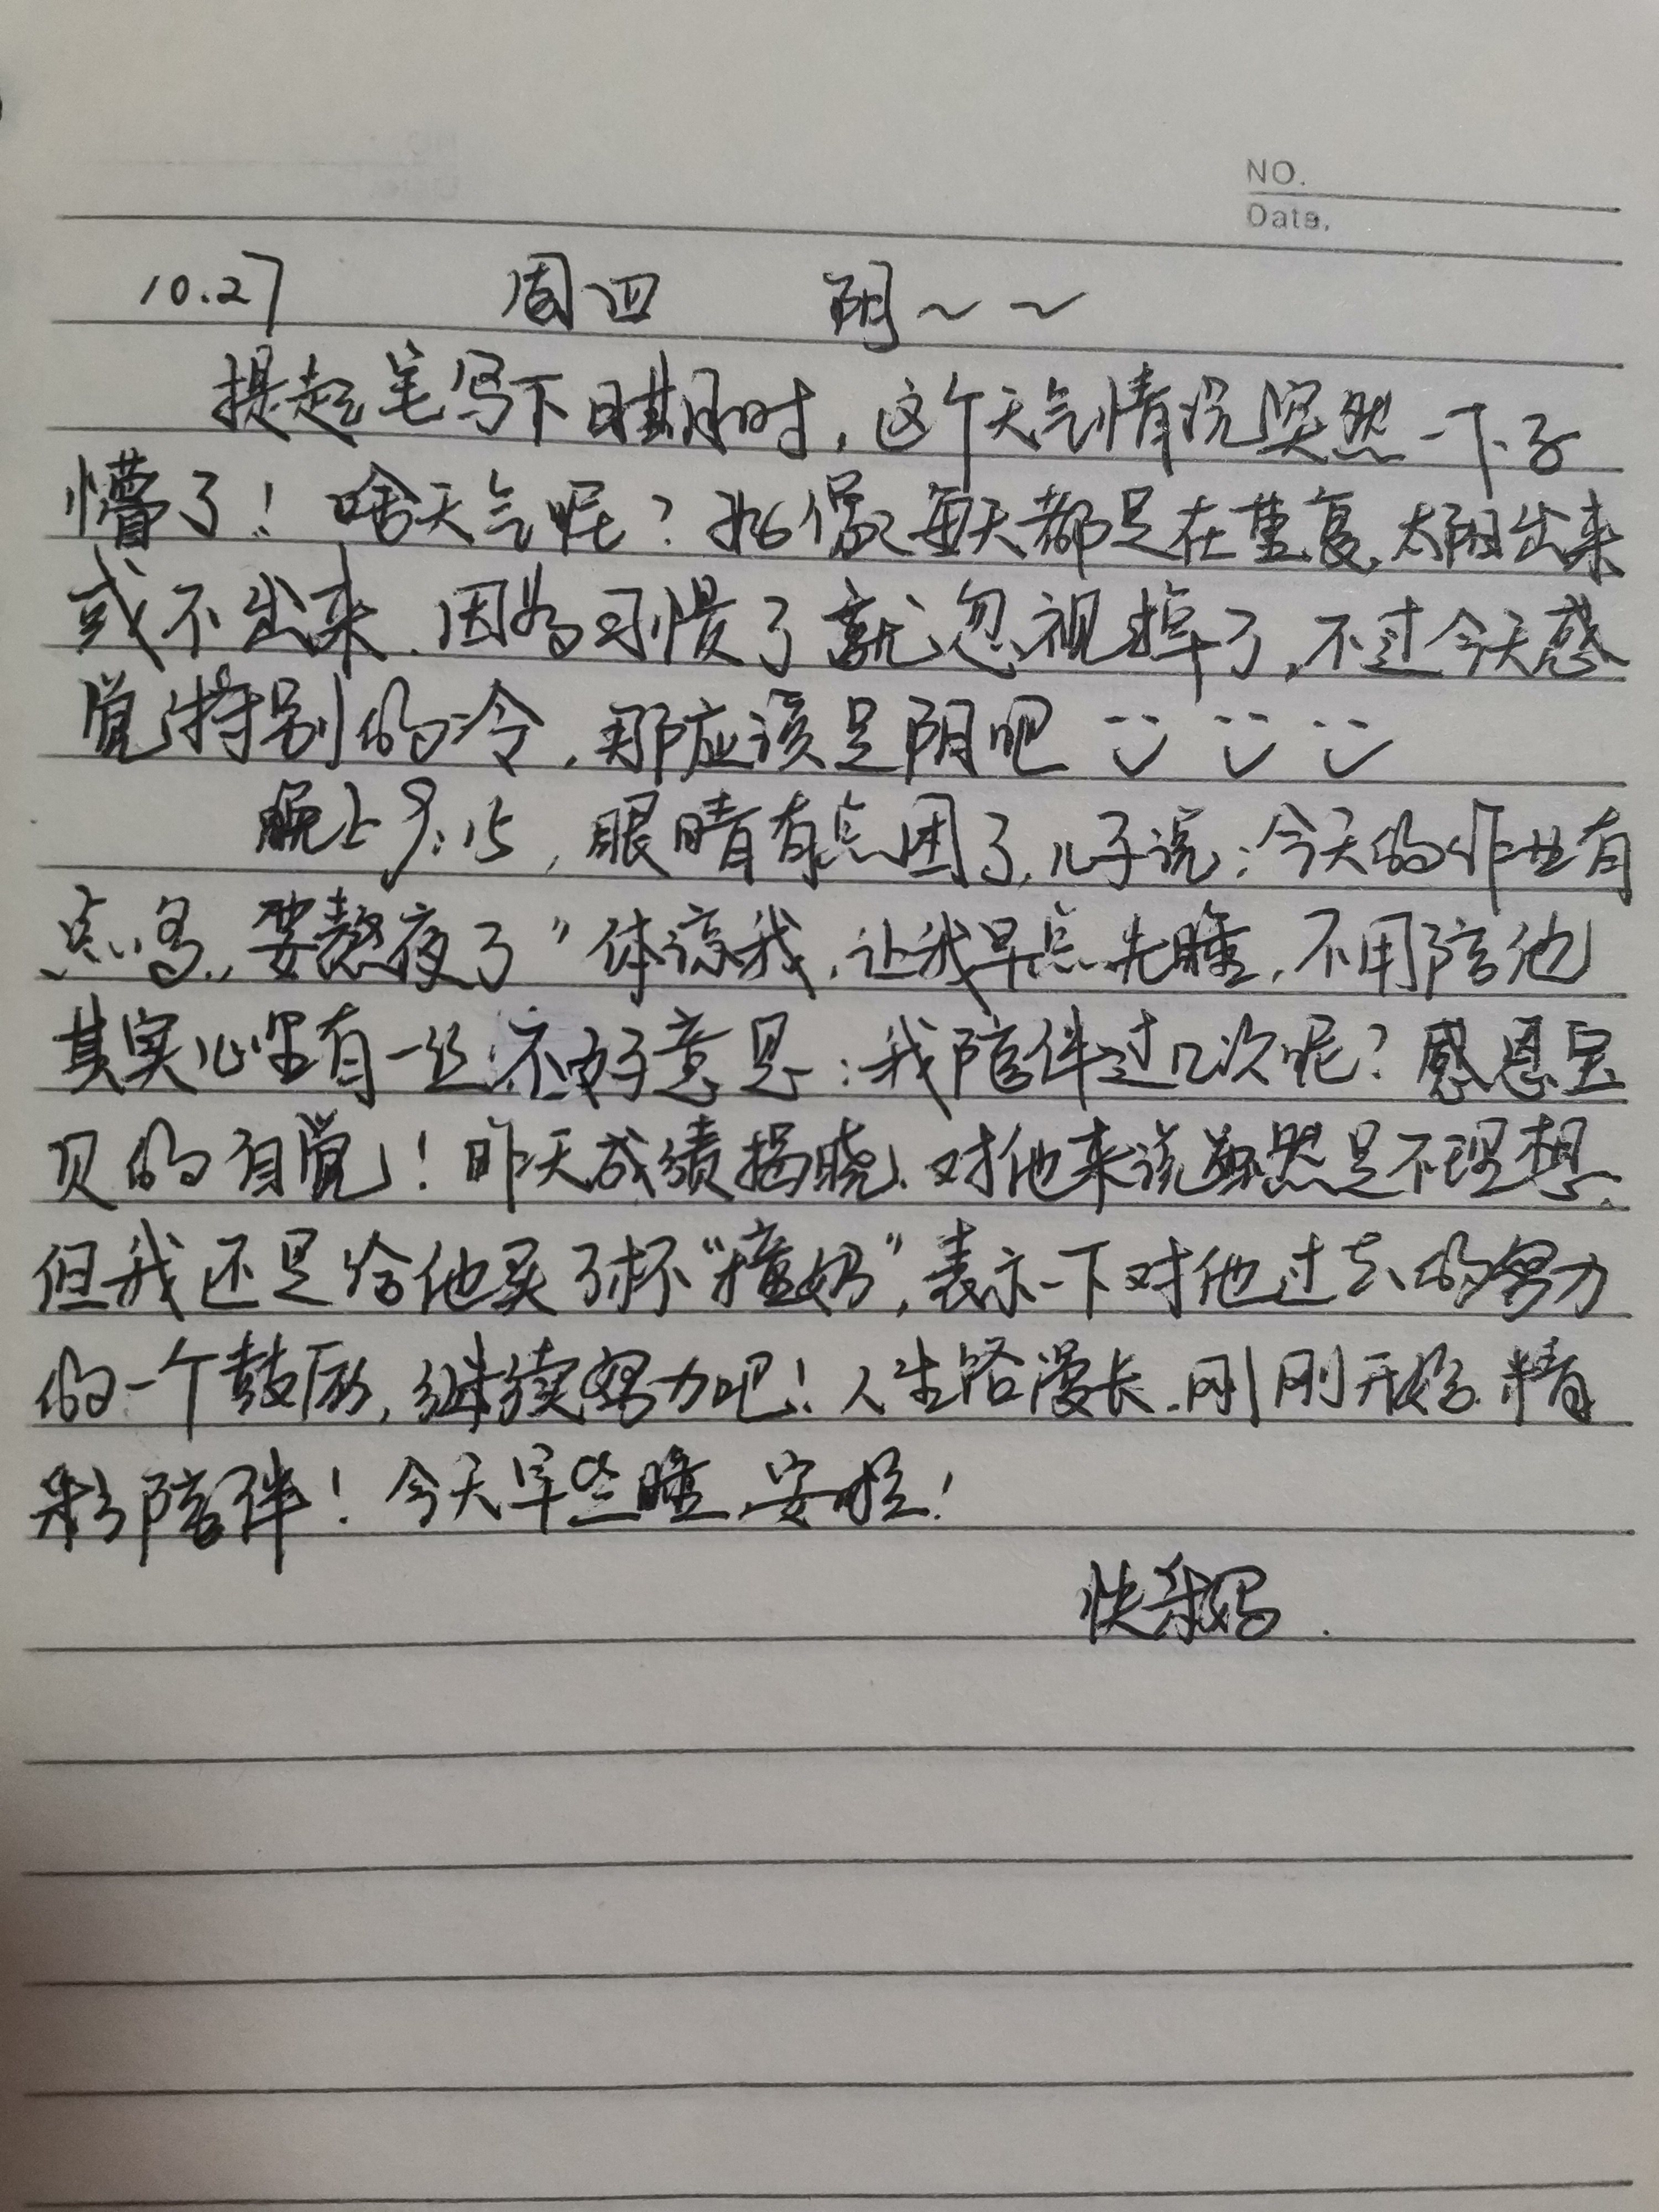 NO.
Date.
10.27 周四 阴～～
提起笔写下日期时，这个天气情况突然一下子
懵了！啥天气呢？好像每天都是在重复，太阳出来
或不出来，因为习惯了就忽视掉了，不过今天感
觉特别的冷，那应该是阴吧
晚上9:15，眼睛有点困了，儿子说：今天的作业有
点多，要熬夜了”体谅我，让我早点先睡，不用陪他
其实心里有一丝不好意思：我陪伴过几次呢？感恩宝
贝的自觉！昨天成绩揭晓，对他来说虽然是不理想，
但我还是给他买了杯“撞奶”，表示一下对他过去的努力
的一个鼓励，继续努力吧！人生路漫长，刚刚开始，精
彩陪伴！今天早些睡，安啦！
快乐妈.